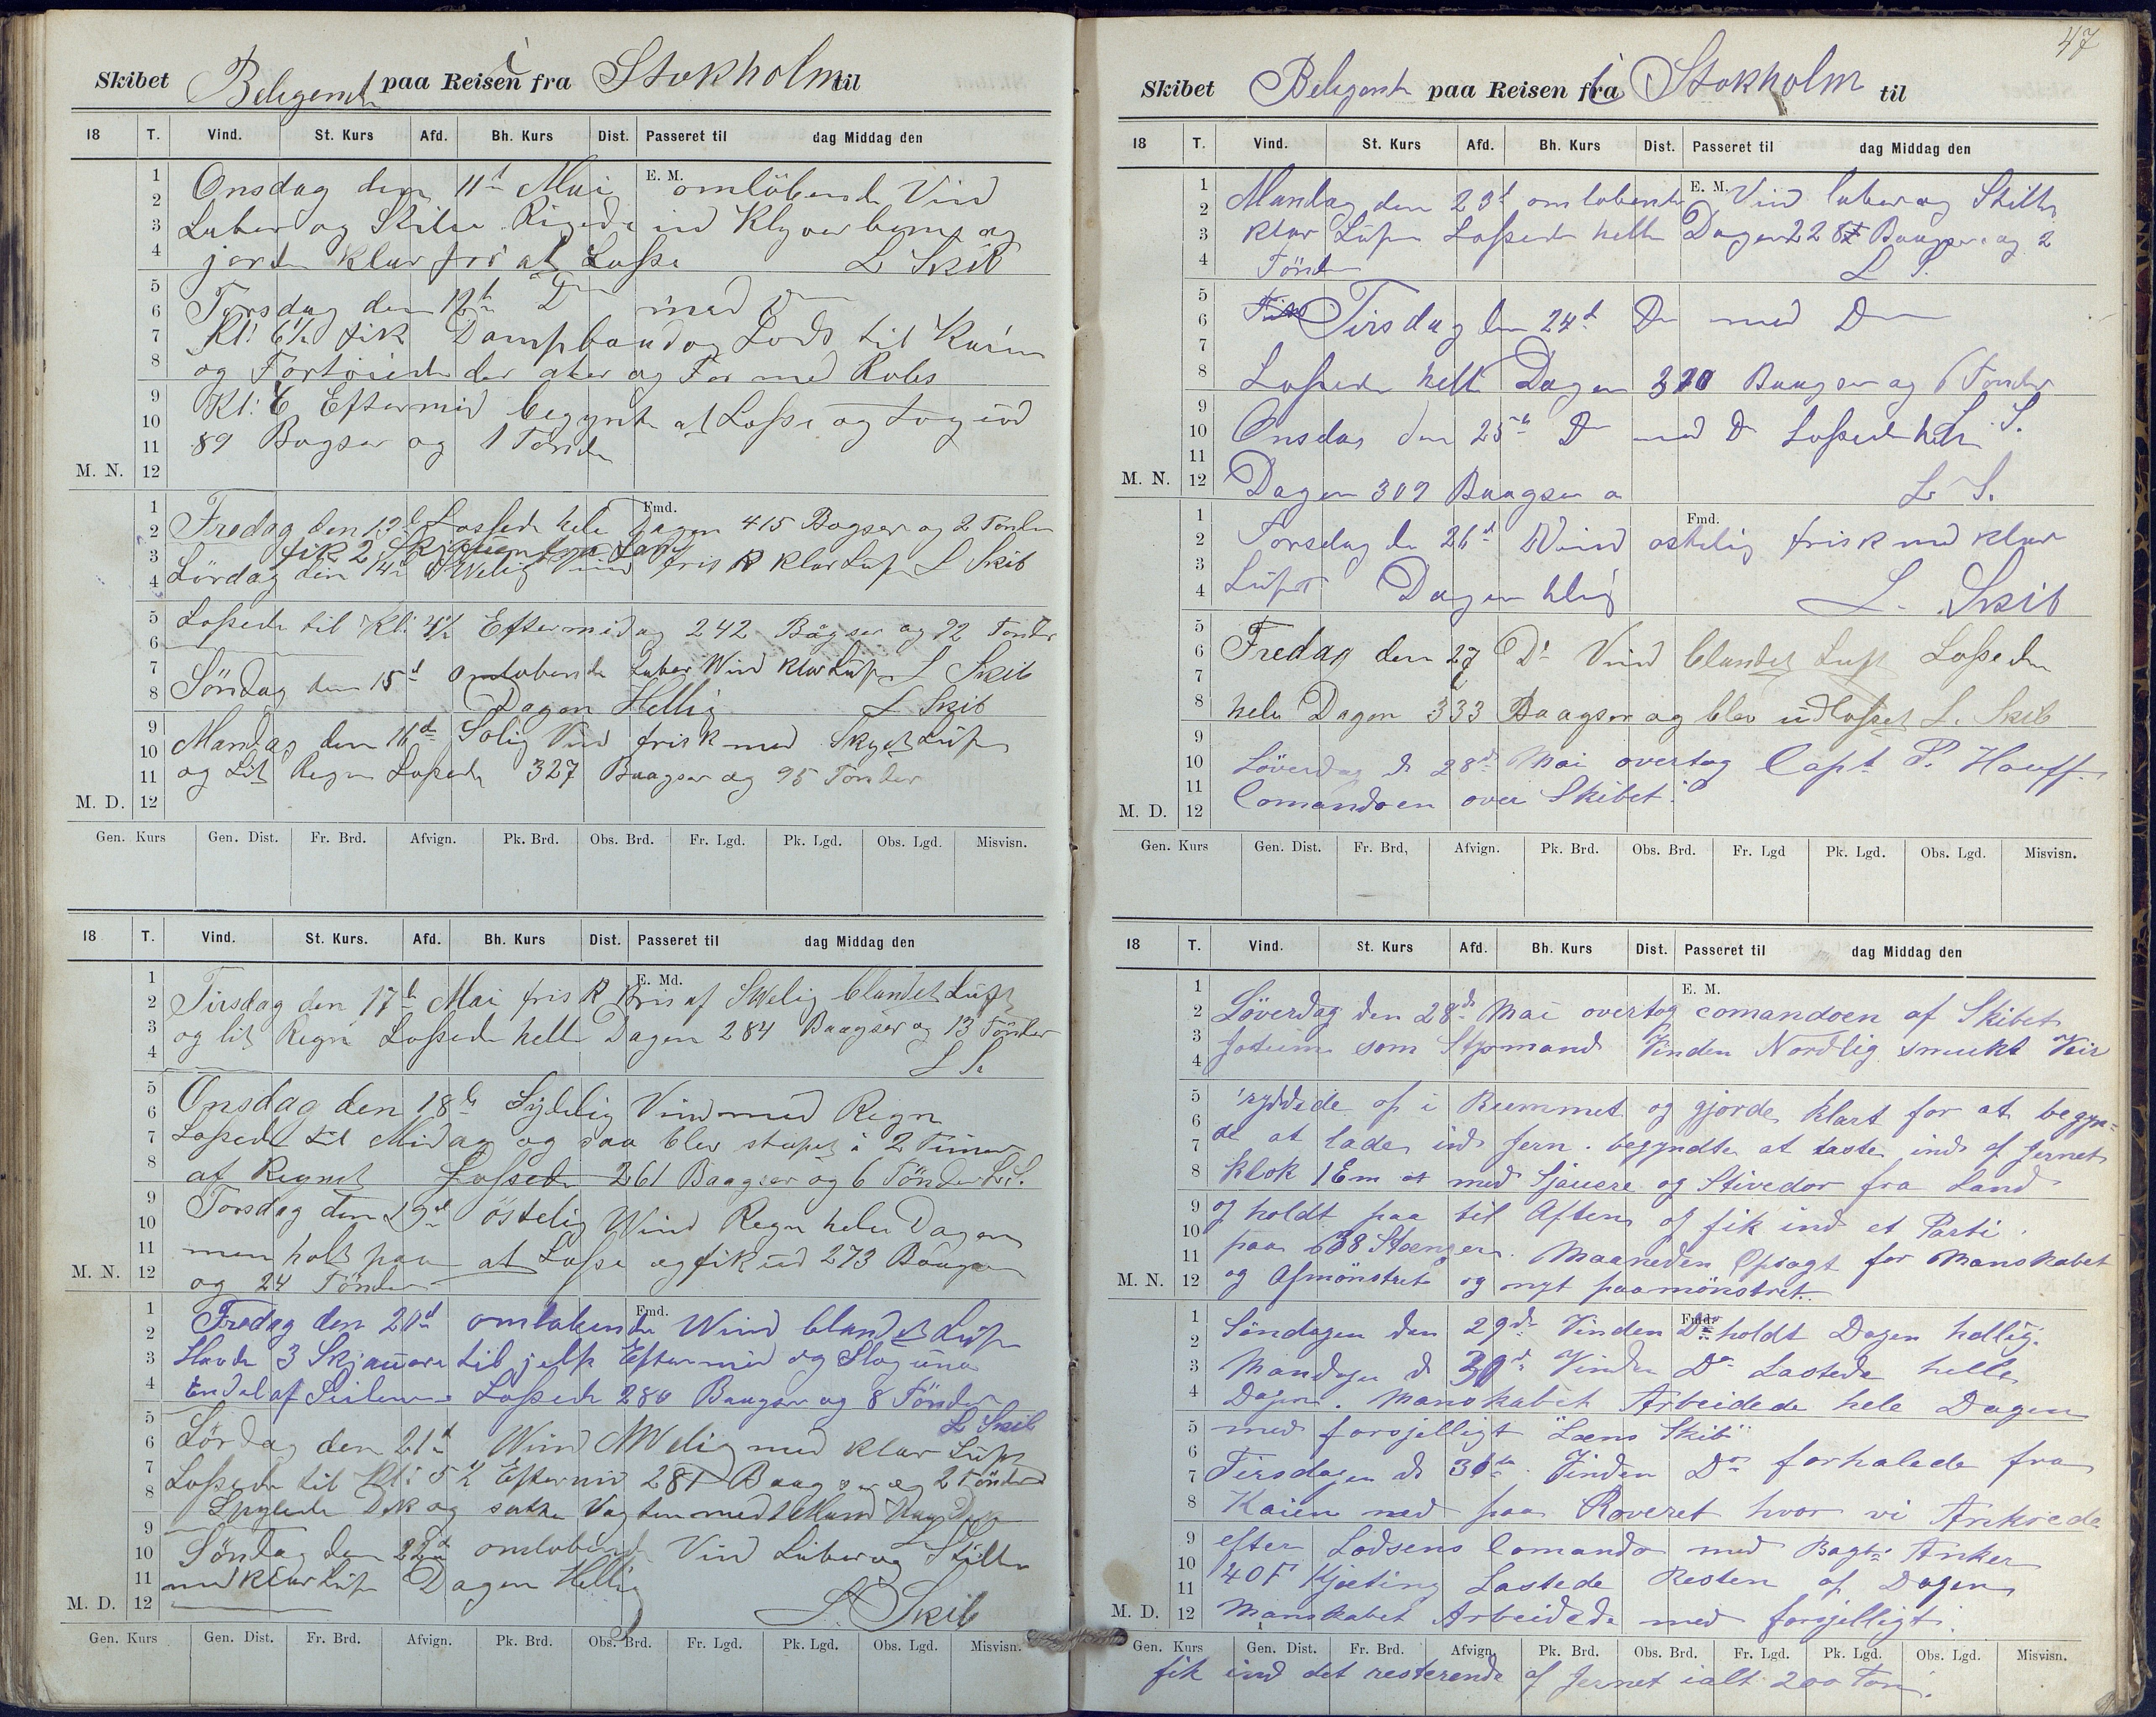 Skibet Beligerent paa Reisen i fra Stokholm til
18 T. Vind. St. Kurs Afd. Bh. Kurs Dist. Passeret til dag Middag den
E. M.
Onsdag den 11t Mai omlöbende Vind
Laber og Stille Rigede ind Klyverbom og
jorde klar for at Losse L Skib
Torsdag den 12t D med D
Kl: 6½ fik Dampbaad og Lods til Kaien
og Fortöiede der ater og For med Robs
Kl: E Eftermid begynte at Losse og tog ud
89 Bagser og 1 Tönde
M. N.
Fmd.
Fredag den 13d Lossede hele Dagen 415 Bagser og 2 Tönder
fik 2 Skjauer fra Land
Lördag den 14d SWelig Vind frisk klar Luft L Skib
Lossede til Kl: 4½ Eftermidag 242 Bagser og 72 Tönder
L Skib
Söndag den 15d omlobende Laber Wind klar Luft
Dagen Hellig L Skib
Mandag den 16de Solig Vind frisk med Skyet Luft
og Lit Regn Lossede 327 Baagser og 95 Tönder
M. D.
Gen. Kurs Gen. Dist. Fr. Brd. Afvign. Pk. Brd. Obs. Brd. Fr. Lgd. Pk. Lgd. Obs. Lgd. Misvisn.
18 T. Vind. St. Kurs. Afd. Bh. Kurs Dist. Passeret til dag Middag den
E. Md.
Tirsdag den 17d Mai frisk Bris af SWelig blandet Luft
og lit Regn Lossede helle Dagen 284 Baagser og 13 Tönder
L S.
Onsdag den 18d Sydelig Vind med Regn
Lossede til Midag og saa blev stopet i 2 Timer
af Regnet Lossede 261 Baagser og 6 Tönder L.S.
Torsdag den 19d östelig Wind Regn hele Dagen
men holt paa at Losse og fik ud 273 Baagser
og 24 Tönder
M. N.
Fmd.
Fredag den 20d omlobende Wind blandet Luft
Havde 3 Skjauere til jelp Eftermid og Slog una
Endel af Seilene Lossede 280 Baagser og 8 Tönder
L Skib
Lördag den 21d Wind NWelig med klar Luft
Lossede til Kl: 5½ Eftermid 281 Baagser og 2 Tönder
Spylede Dek og satte Vagten med 1 Mand Paa Dek
Söndag den 22d omlobende Vind Laber og Stille
med klar Luft Dagen Hellig
L. Skib
M. D.
Gen. Kurs Gen. Dist. Fr. Brd. Afvign. Pk. Brd. Obs. Brd. Fr. Lgd. Pk. Lgd. Obs. Lgd. Misvisn.
47
Skibet Beligerent paa Reisen fra i Stokholm til
18 T. Vind. St. Kurs Afd. Bh. Kurs Dist. Passeret til dag Middag den
E. M.
Mandag den 23d omlobende Vind laber og Stille
klar Luft Lossede helle Dagen 228 Baagser og 2
Tönder L S.
Tirsdag den 24d D med D
Lossede helle Dagen 320 Baagser og 6 Tonder
L S.
Onsdag den 25d D med D Lossede hele
Dagen 309 Baagser L S.
M. N.
Fmd.
Torsdag de 26d Wind ostelig frisk med klar
Luft Dagen hlig L. Skib
Fredag den 27 D Vind blandet Luft Lossede
hele Dagen 333 Baagser og blev udlosset L. Skib
Löverdag d 28de Mai overtog Capt P. Hauff
Comandoen over Skibet.
M. D.
Gen. Kurs Gen. Dist. Fr. Brd, Afvign. Pk. Brd. Obs. Brd. Fr. Lgd Pk. Lgd. Obs. Lgd. Misvisn.
18 T. Vind. St. Kurs Afd. Bh. Kurs Dist. Passeret til dag Middag den
E. M.
Löverdag den 28de Mai overtog comandoen af Skibet
som Styrmand Vinden Nordlig smukt Veir
ryddede op i Rummet og gjorde klart for at begyn=
de at lade ind Jern. begyndte at laste ind af Jernet
klok 1 Em med Sjauere og Stivedor fra Land
og holdt paa til Aften og fik ind et Parti
paa 638 Stænger. Maaneden Opsagt for Manskabet
og Afmönstret og nyt paamönstret.
M. N.
Fmd.
Söndagen den 29de Vinden Do holdt Dagen hellig.
Mandagen d 30d Vinden Do Lastede helle
Dagen. Manskabet Arbeidede hele Dagen
med forsjelligt "Læns Skib"
Tirsdagen d 31te Vinden Do forhalede fra
Kaien ned paa Roveret hvor vi Ankrede
efter Lodsens Comando med Bagb: Anker
40 F Kjæting Lastede Resten af Dagen
Manskabet Arbeidede med forsjelligt.
M. D.
Gen. Kurs Gen. Dist. Fr. Brd. Afvign. Pk. Brd. Obs. Brd. Fr. Lgd. Pk. Lgd. Obs. Lgd. Misvisn.
fik ind det resterende af Jernet ialt 200 Ton.